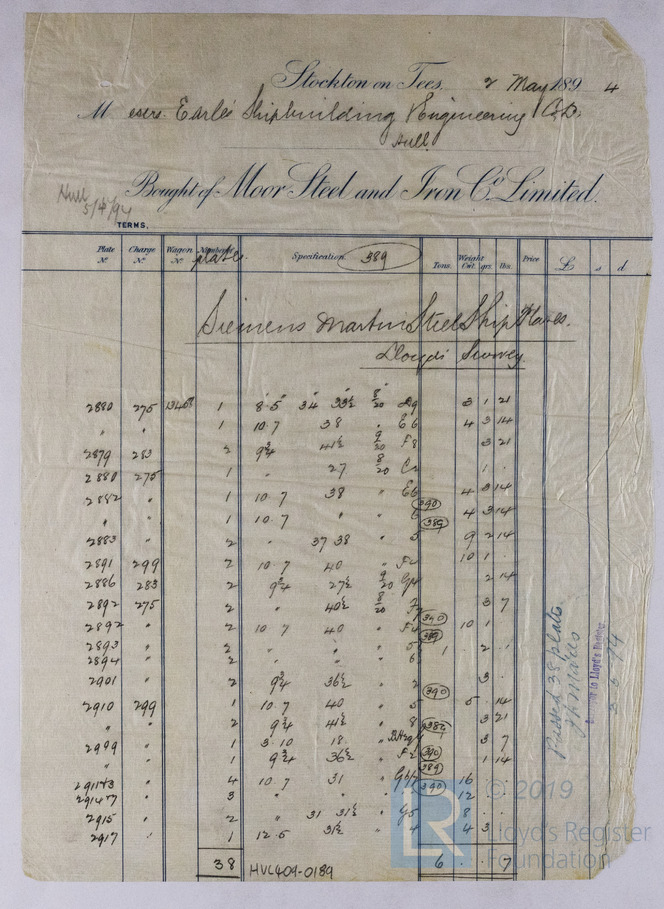 Stockton on Tees. 2 May 1894
Messrs. Earle's Shipbuilding & Engineering Co. Ld.
Hull
Bought of Moor Steel and Iron Co. Limited.
Hull
5/4/94
TERMS.
Plate No. Charge No. Wagon No. Number of plates Specification 389 Tons. Weight Cwt. qrs. lbs. Price £ s d
Siemens Martin Steel Ship Plates.
Lloyds Survey
2880 275 1 8.5 34 33½ 8/20 3 1 21
" " 1 10.7 38 " E6 4 3 14
2879 283 2 9¾ 41½ 9/20 F8 3 21
2880 275 1 " 27 8/20 1 .
2882 " 1 10.7 38 " E6 4 3 14
390
" " 1 10.7 " " 6 4 3 14
389
2883 " 2 " 37 38 " 5 9 2 14
2891 299 2 10.7 40 " 10 1 .
2886 283 2 9¾ 27½ 9/20 2 14
2892 275 2 " 40½ 8/20 3 7
390
2892 " 2 10.7 40 " F4 10 1
389
2893 " 2 " " " 5 1 . 2 .
2894 " 2 " " " 6
2901 " 2 9¾ 36½ " 2 3 .
390
2910 299 1 10.7 40 " 5 5 . 14
" " 2 9¾ 41½ " 8 389 3 21
2999 " 1 3.10 18 " 3 7
" " 1 9¾ 36½ " F2 390 1 14
389
" 4 10.7 31 " 390 16
" 3 " " " 12 . .
2915 " 2 " 31 31½ " G5 8 . .
2917 " 1 12.5 31½ " 4 4 3 .
38 6 . . 7
HUL409-0189
Passed 38 plates
Surveyor to Lloyd's Register
3-5-94
LR
© 2019
Lloyd's Register
Foundation